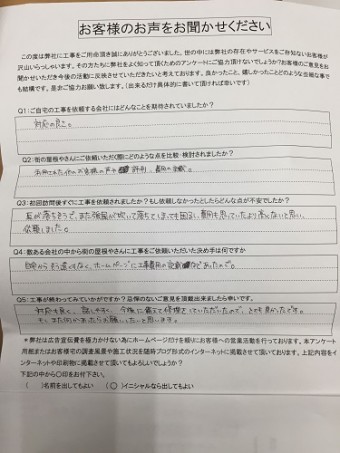 お客様のお声をお聞かせください
この度は弊社に工事をご用命頂き誠にありがとうございました。世の中には弊社の存在やサービスをご存知ないお客様が
沢山いらっしゃいます。その方たちに弊社をよく知って頂くためのアンケートにご協力頂けないでしょうか?お客様のご意見を
お聞かせいただき今後の活動に反映させていただきたいと考えております。良かったこと、嬉しかったことどのような些細な事で
も結構です。是非ご協力お願い致します。(出来るだけ具体的に書いて頂ければ幸いです)
Q1:ご自宅の工事を依頼する会社にはどんなことを期待されていましたか?
対応の良さ。
Q2:街の屋根やさんにご依頼いただく際にどのような点を比較・検討されましたか?
お客様の声 評判、費用
Q3:初回訪問後すぐに工事を依頼されましたか?もし依頼しなかったとしたらどんな点が不安でしたか?
瓦が落ちそうで、また強風が吹いて落ちてしまっても困るし、費用も思っていたより高くないと思い、
依頼しました。
Q4:数ある会社の中から街の屋根やさんに工事をご依頼いただいた決め手は何ですか
自宅からそう遠くなく、ホームページに工事費用の などあったので。
Q5:工事が終わってみていかがですか?忌憚のないご意見を頂戴出来ましたら幸いです。
対応も良く、話しやすく、今後に備えて修理をしていただいたので、とても良かったです。
もし、また何かあったらお願いしたいと思います。
*弊社は広告宣伝費を極力かけない為にホームページだけを頼りにお客様への営業活動を行っております。本アンケート
用紙またはお客様宅の調査風景や施工状況を随時ブログ形式のインターネットに掲載させて頂いております。上記内容をイ
ンターネットや印刷物に掲載させて頂いてもよろしいでしょうか?
下記の中から〇印をお付下さい。
( )名前を出してもよい (〇)イニシャルなら出してもよい